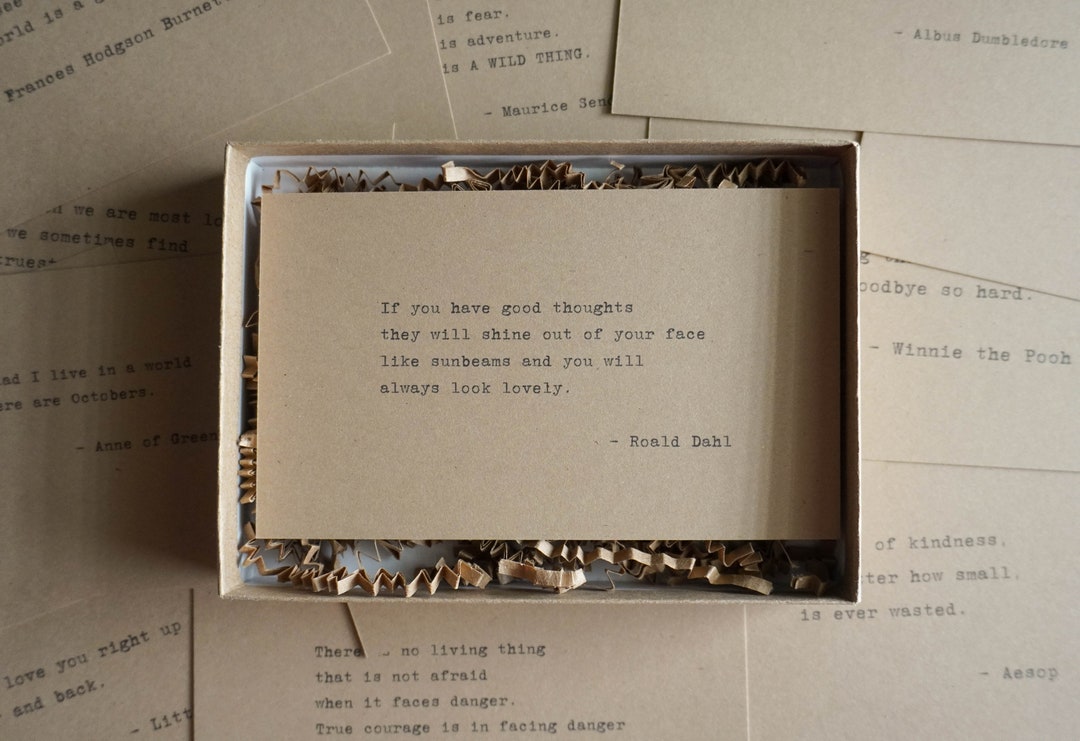 orld is a
Frances Hodgson Burnett
is fear.
is adventure.
is A WILD THING.
- Maurice Sen
- Albus Dumbledore
we are most lo
we sometimes find
If you have good thoughts
they will shine out of your face
like sunbeams and you will
always look lovely.
- Roald Dahl
oodbye so hard.
- Winnie the Pooh
ad I live in a world
ere are Octobers.
- Anne of Green
of kindness,
tter how small,
is ever wasted.
- Aesop
love you right up
and back.
- Litt
There no living thing
that is not afraid
when it faces danger.
True courage is in facing danger